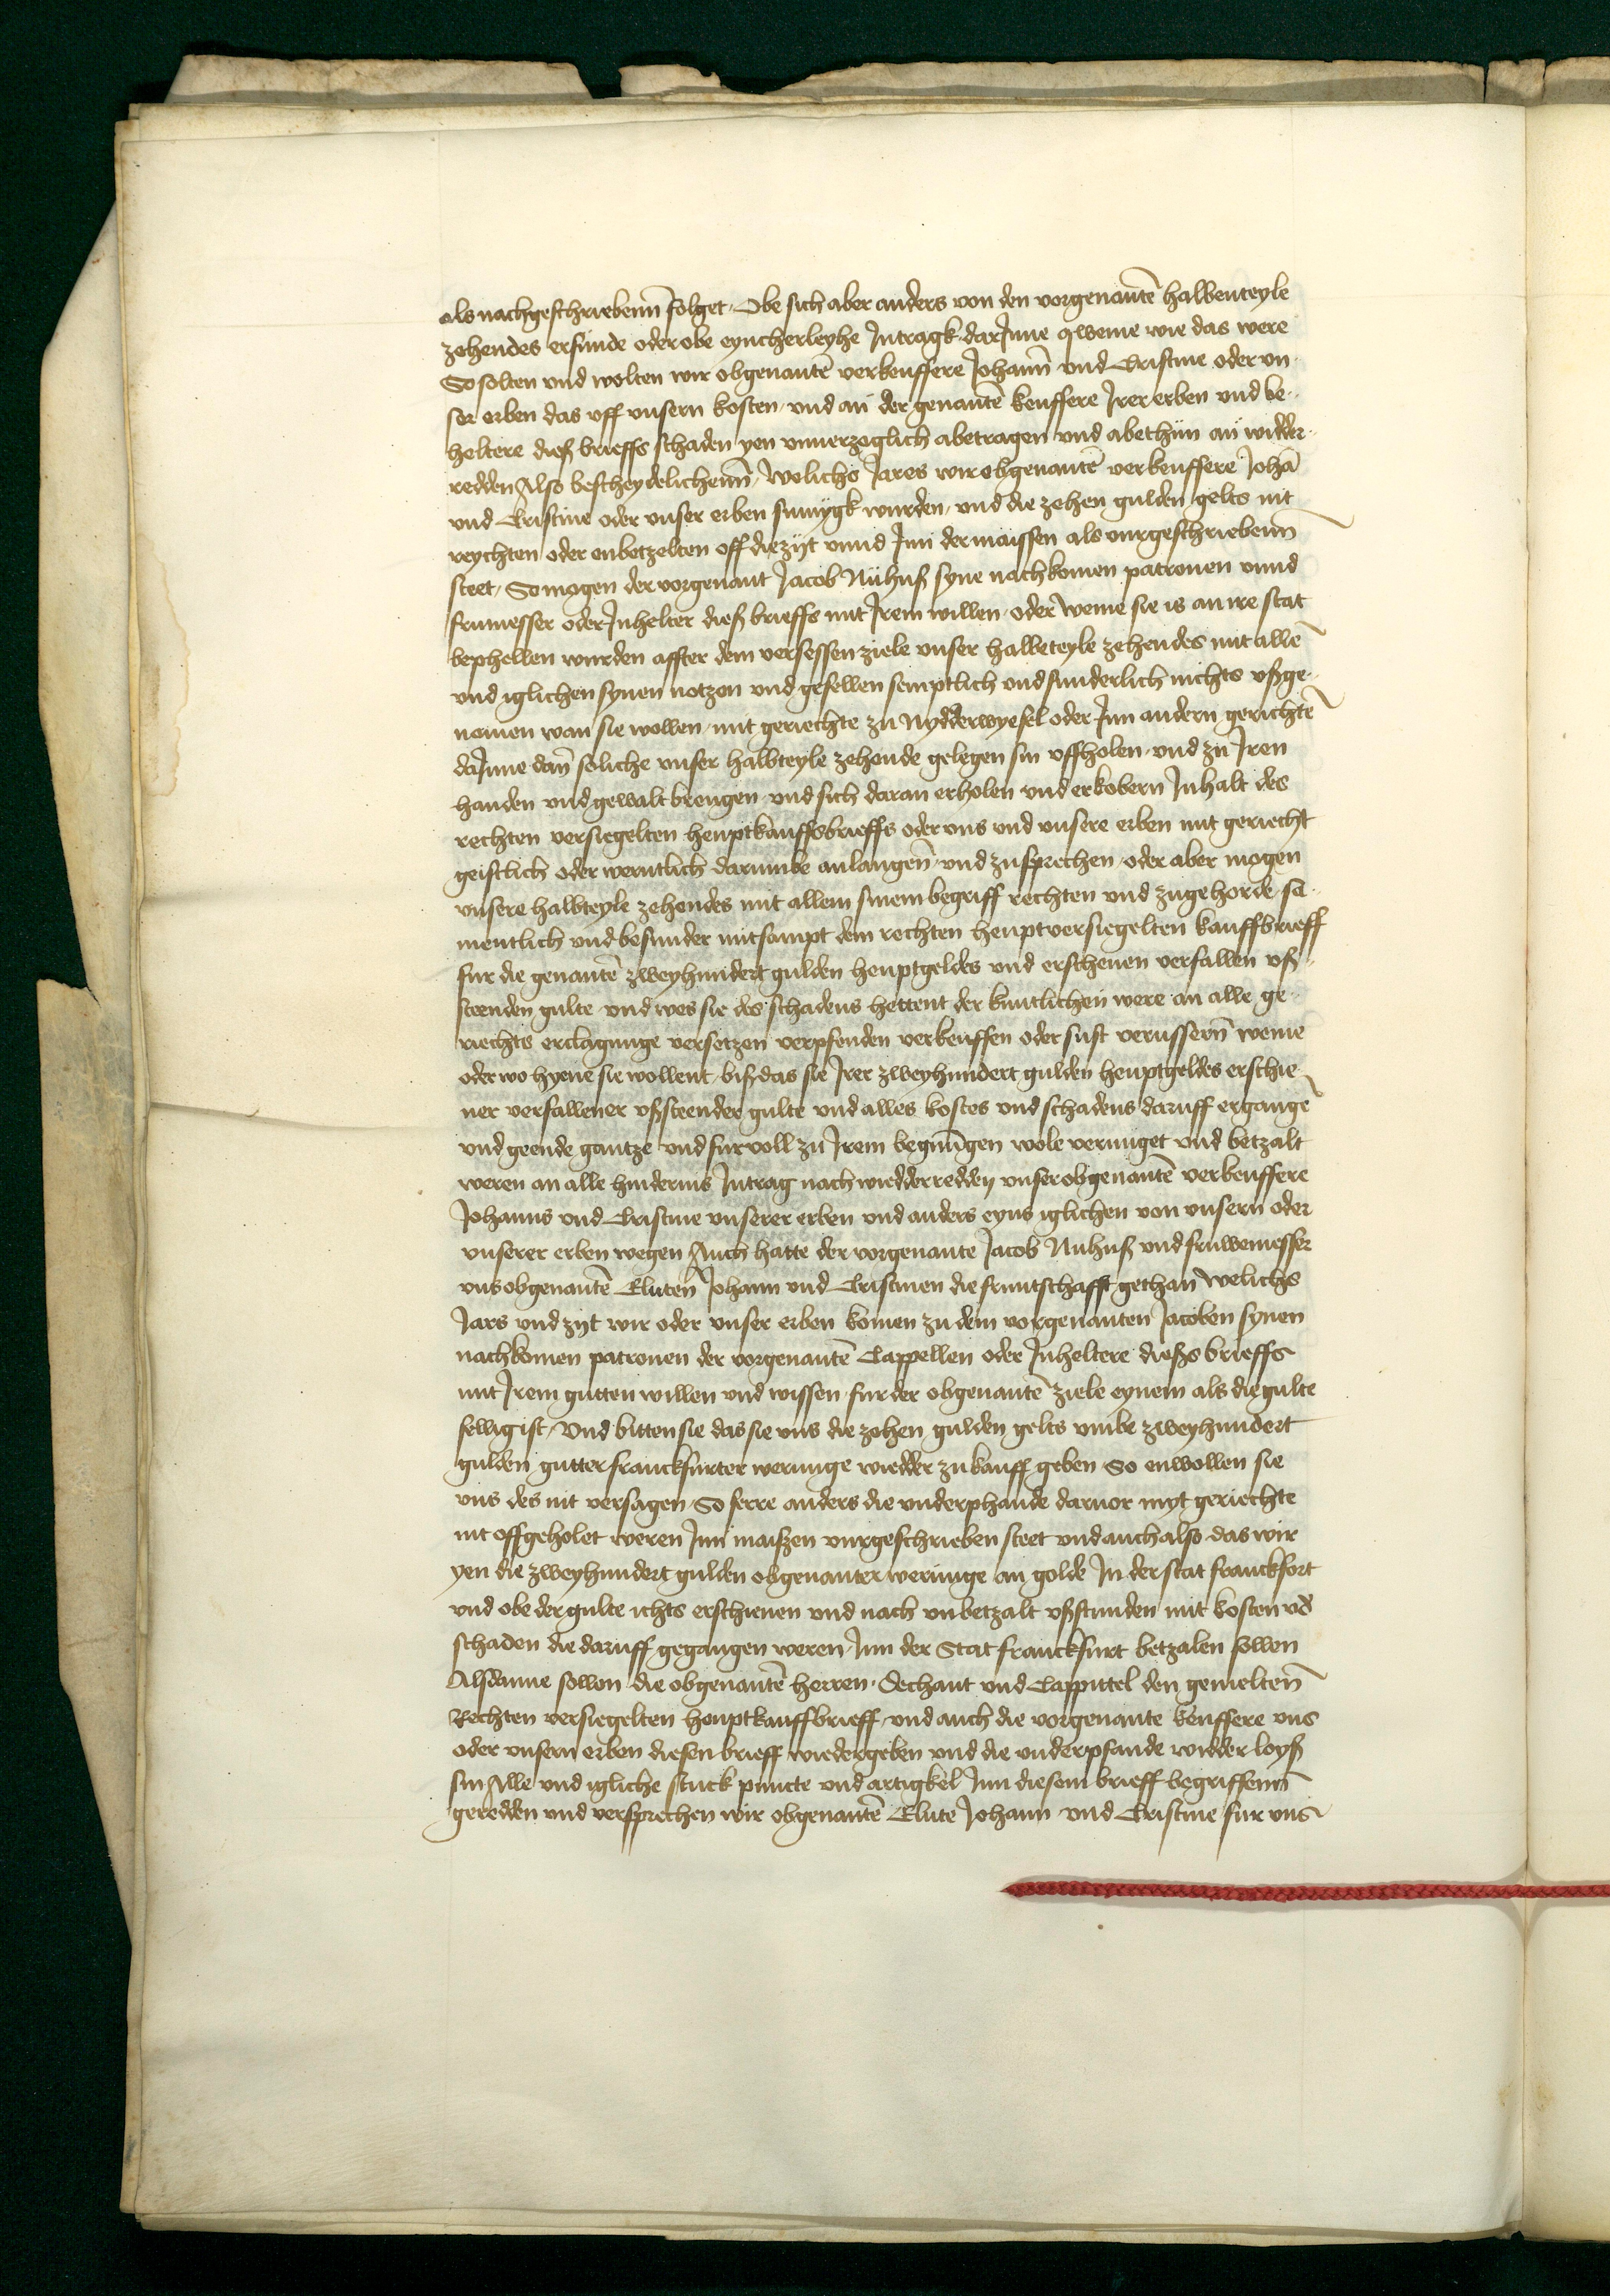 als nachgeschriebenn̄ folget. Obe sich aber anders von den vorgenantē halbenteyle
zehendes erfunde oder obe eyncherleyhe Intragk darInne qweme wie das were
So solten vnd wolten wir obgenantē verkeuffere Johann̄ vnd Cristine oder vn-
ser erben das vff vnsern kosten vnd an der genantē keuffere Irer erben vnd be-
heltere dieß brieffs schaden yen vnuerzoglich abetragen vnd abethun an widder-
redden Also bescheydelichenn̄, welichs Jares wir obgenantē verkeuffere Johā
vnd Cristine oder vnser erben sumygk wurden, vnd die zehen gulden gelts nit
reychten oder enbetzelten off die zijt vnnd Inn der maissen als vurgeschriebenn̄
steet, So mogen der vorgenant Jacob Nuhuß syne nachkomen patronen vnnd
frumesser oder Inhelter dieß brieffs mit Irem willen oder weme sie is an ire stat
bephellen wurden affter dem versessen ziele vnser halbeteyle zehendes mit allē
vnd iglichen synen notzen vnd gefellen semptlich vnd sunderlich nichts vßge-
nomen wan sie wollen mit geriechte zu Nydderwyesel oder Inn andern gerichtē
daInne dan̄ soliche vnser halbteyle zehende gelegen sin vffholen vnd zu Iren
handen vnd gewalt brengen vnd sich daran erholen vnd erkobern Inhalt des
rechten versiegelten heuptkauffsbrieffs oder vns vnd vnsere erben mit geriecht
geistlich oder werntlich darumbe anlangen̄ vnd zusprechen oder aber mogen
vnsere halbteyle zehendes mit allem sinem begriff rechten vnd zugehorde sa-
mentlich vnd besunder mitsampt dem rechten heuptversiegelten kauffbrieff
fur die genantē zweyhundert gulden heuptgeldes vnd erschenen verfallen vß-
steenden gulte vnd wes sie des schadens hettent der kuntlichen were an alle ge-
riechts erclagunge versetzen verpfenden verkeuffen oder sust verussern̄ weme
oder wo hyene sie wollent, biß das sie Irer zweyhundert gulden heuptgeldes erschie-
ner verfallener vßsteender gulte vnd alles kostes vnd schadens daruff ergangē
vnd geende gantze vnd fur voll zu Irem begnūgen wole vernuget vnd betzalt
weren an alle hindernis Intrag nach wiedderredden vnser obgenantē verkeuffere
Johanns vnd Cristine vnserer erben vnd anders eyns iglichen von vnsern oder
vnserer erben wegen Auch hatte der vorgenante Jacob Nuhuß vnd fruwemesser
vns obgenantē Eluten Johann vnd Cristinen die fruntschafft gethan welichs
Jars vnd zijt wir oder vnser erben komen zu dem vorgenanten Jacoben synen
nachkomen patronen der vorgenantē Cappellen oder Inheltere dießs brieffs
mit Irem gutten willen vnd wissen fur der obgenantē ziele eynem als die gulte
fellig ist, Vnd bitten sie das sie vns die zehen gulden gelts vmbe zweyhundert
gulden gutter franckfurter werunge wiedder zu kauff geben So enwollen sie
vns des nit versagen, So ferre anders die vnderphande daruor myt geriechte
nit offgeholet weren Inn maißen vurgeschrieben steet vnd auch also das wir
yen die zweyhundert gulden obgenanter werunge an golde In der stat franckfort
vnd obe der gulte ichts erschienen vnd nach vnbetzalt vßstunden mit kosten vn̄d
schaden die daruff gegangen weren Inn der Stat franckfurt betzalen sollen
Alsdanne sollen die obgenantē herren. Dechant vnd Cappittel den gemelten̄
Rechten versiegelten heuptkauffbrieff vnd auch die vorgenante keuffere vns
oder vnsern erben diesen brieff wiedergeben vnd die vnderpfande widder loyß
sin Alle vnd igliche stuck puncte vnd artigkel Inn diesem brieff begriffenn̄
geredden vnd versprechen wir obgenantē Elute Johann vnd Cristine fur vns